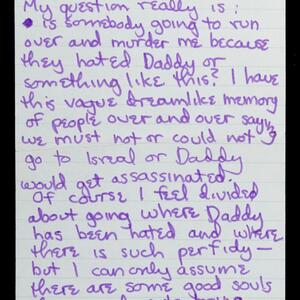 My question really is:
• is somebody going to run
over and murder me because
they hated Daddy or
something like this? I have
this vague dreamlike memory
of people over and over saying
we must not or could not
go to Isreal or Daddy
would get assassinated.
Of course I feel divided
about going where Daddy
has been hated and where
there is such perfidy—
but I can only assume
there are some good souls